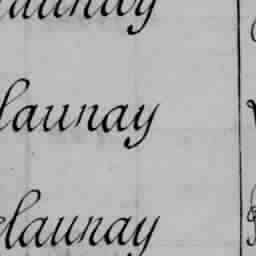 launay
launay
elaunay